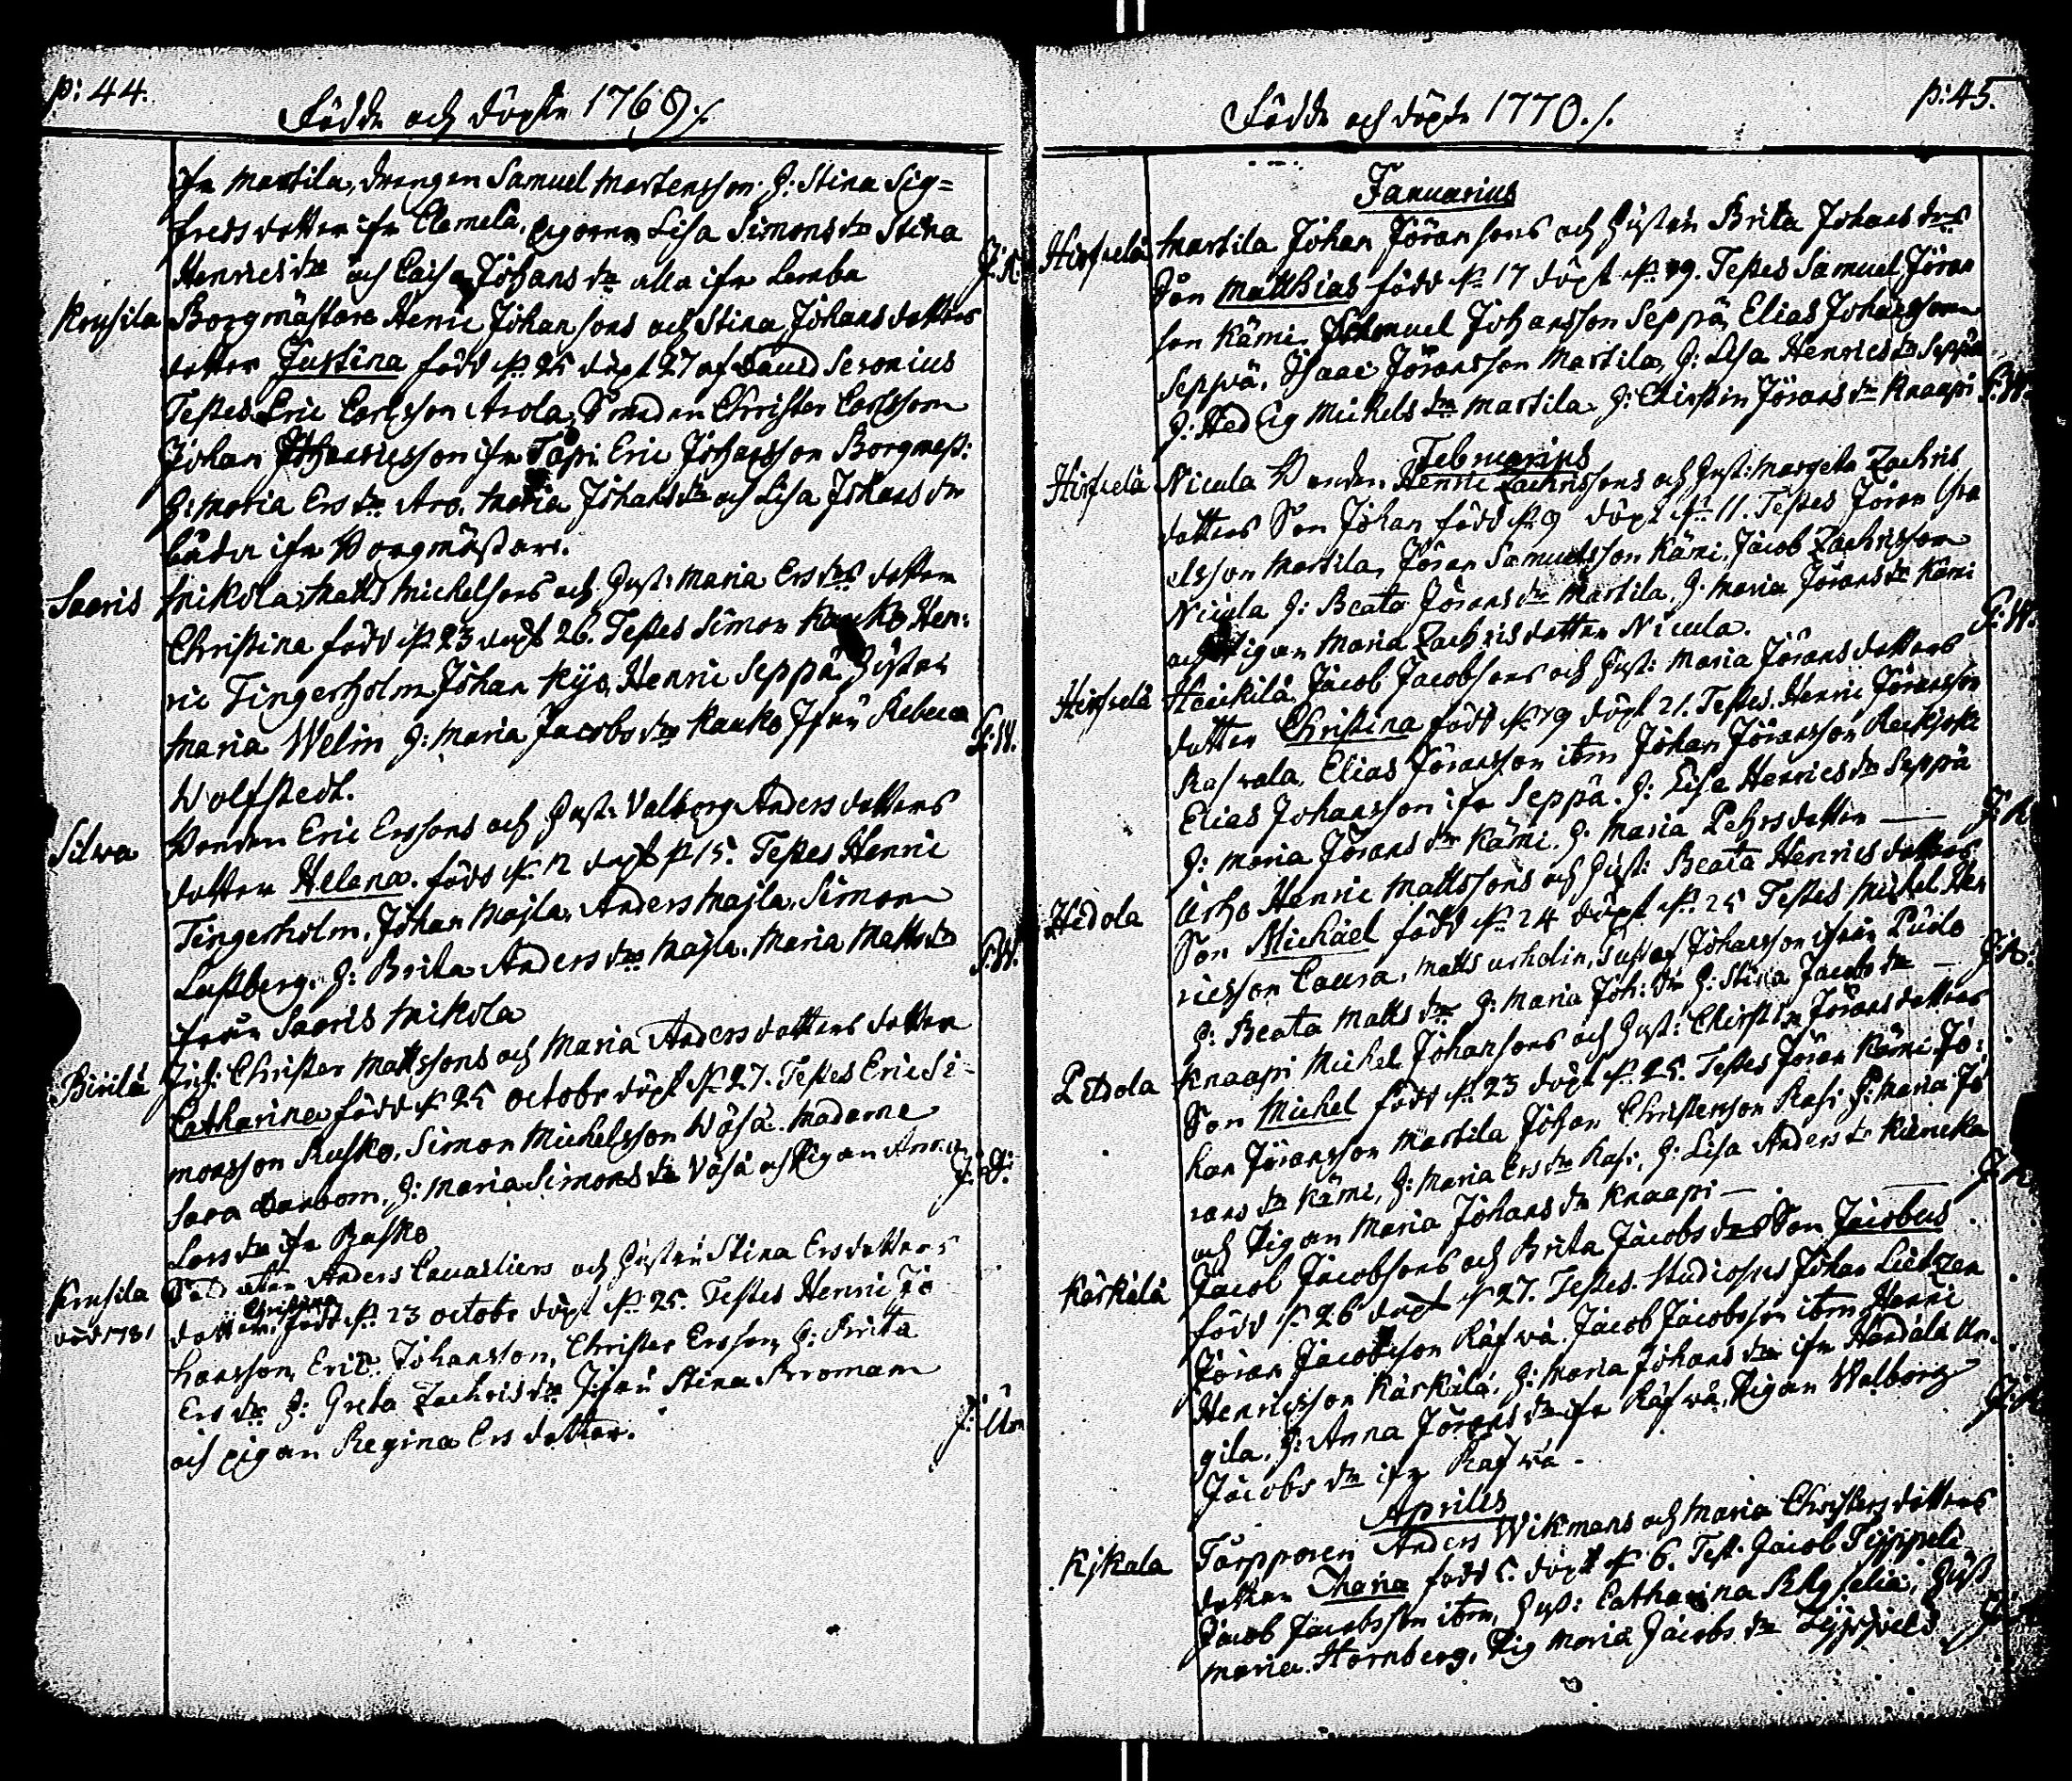 p: 44.
Födde och döpte 1769 ./.
ifr Martila, drengen Samuel Mortensson. H: Stina Sig=
freds dotter ifr Clemela, Pigorna Lisa Simons dr Stina
Henrics dr och Caisa Johans dr alla ifr Lemba
J: K:
Krusila Borgmästare Henric Johansons och Stina Johans dotters
dotter Justina född d. 25 döpt 27 af David Seronius
Testes Eric Carlsson Arola, Smeden Christer Carlsson
Johan Henricsson ifr Tapi Eric Johansson Borgmest:
H: Maria Ers dr Aro. Maria Johans dr och Lisa Johans dr
båda ifr Borgmästars.
Saaris Mikola Matts Michelsons och Hust: Maria Ers drs dotter
Christina född d. 23 döpt 26. Testes Simon Kauko Hen:
ric Tingerholm Johan Kyö, Henric Seppä. Hustrun
Maria Welin H: Maria Jacobs dr Kauko Jfru Rebeca
Wolfstedt.
Silva Bonden Eric Erssons och Hust: Valborg Anders dotters
dotter Helena. född d. 12 döpt d. 15. Testes Henric
Tingerholm. Johan Majla, Anders Majla. Simon
Lustberg. H: Brita Anders dr Majla. Maria Matts dr
från Saaris Mikola
Birilä Christer Mattssons och Maria Anders dotters dotter
Catharina född d. 25 octobr döpt d. 27. Testes Eric Si=
monsson Rusko. Simon Michelsson Wäsä. Madame
Sara H: Maria Simons dr Väsä och Pigan Anna
Lars dr ifr Rusko
Krusila Soldaten Anders Cavaliers och Hustrun Stina Ers dotters
död 1781 dotter Christina född d. 23 octobr döpt d. 25. Testes Henric Jo
hansson, Eric Johansson, Christer Ersson, H: Brita
Ers dr H: Greta Zachris dr Jfru Stina Broman
och pigan Regina Ers dotter.
p: 45.
Födde och döpte 1770 ./.
Januarius
Hirfvelä Martila Johan Jöransons och Hustrun Brita Johans drs
Son Matthias född d. 17 döpt d. 19. Testes Samuel Jöran
son Kämi Samuel Johansson Seppä, Elias Johansson
Seppä, Isaac Jöransson Martila, H: Lisa Henrics dr Seppä
H: Hedvig Michels dr Martila H: Christin Jörans dr Knaapi
Februarius
Hirfvelä Nicula Bonden Henric Zachrissons och Hust: Margeta Zachris
dotters Son Johan född d. 9 döpt d. 11. Testes Jöran Isra
elsson Martila, Jöran Samuelsson Kämi, Jacob Zachrisson
Nicula H: Beata Jörans dr Martila, H: Maria Jörans dr Kämi
och Pigan Maria Zachris dotter Nicula.
Hirfvelä Heickilä Jacob Jacobsons och Hust: Maria Jörans dotters
dotter Christina född d. 19 döpt 21. Testes. Henric Jöransson
Rasvala, Elias Jöransson item Johan Jöransson
Elias Johansson ifr Seppä. H: Lisa Henrics dr Seppä
H: Maria Jörans dr Kämi. H: Maria Pehrs dotter
Hedola Urho Henric Mattssons och Hust: Beata Henrics dotters
Son Michaël född d. 24 döpt d. 25 Testes Michel Hen
ricsson Caura, Matts Urholin, Gustaf Johansson ifrån Pudo
H: Beata Matts dr H: Maria Joh: dr H: Stina Jacobs dr
Peldola Knaapi Michel Johansons och Hust: Christin Jörans dotters
Son Michel född d. 23 döpt d. 25. Testes Jöran Kämi Jo:
han Jöransson Martila Johan Christersson Rasi H: Maria Jö
rans dr Kämi, H: Maria Ers dr Rasi, H: Lisa Anders dr
och Pigan Maria Johans dr Knaapi
Kärkälä Jacob Jacobsons och Brita Jacobs drs Son Jacobus
född d. 26 döpt d. 27. Testes. Studiosus Johan Lietzen
Jöran Jacobsson Räfvä. Jacob Jacobsson item Henric
Henricsson Kärkälä, H: Maria Johans dr ifr
gila, H: Anna Jörans dr ifr Räfvä, Pigan Walborg
Jacobs dr ifr Räfvä.
Aprilis
Kjkala Torpparen Anders Wikmans och Maria Christers dotters
dotter Maria född 5. döpt d. 6. Test: Jacob
Jacob Jacobsson item, Hust: Catharina Hust
Maria Hornberg, Pig Maria Jacobs dr